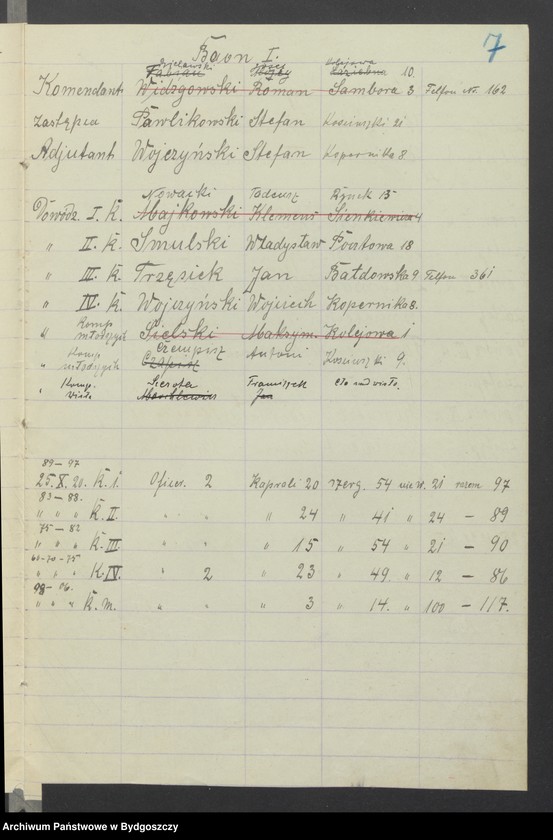 7
Baon I.
Józef Kolejowa 10.
Komendant Widzgowski Roman Sambora 3 Telfon Nr. 162
Zastępca Pawlikowski Stefan Kościuszki 21
Adjutant Wojczyński Stefan Kopernika 8
Nowacki Tadeusz Rynek 15
Dowódz. I. K. Majkowski Klemens Sienkiewicza 4
" II. K. Smulski Władysław Pocztowa 18
" III. K. Trzęsiek Jan Bałdowska 9. Telfon 361
" IV. K. Wojczyński Wojciech Kopernika 8.
" Komp. młodszych Sielski Maksym. Kolejowa 1
" Komp. młodszych Czempisz Antoni Kościuszki 9.
" Komp. Wisła Sierota Franciszek
Jan
89 – 97
25. X. 20. K. I. Oficer. 2 Kaproli 20 szerg. 54 niew. 21 razem 97
83 – 88.
" " " K. II. " " " 24 " 41 " 24 – 89
75 – 82
" " " K. III " " " 15 " 54 " 21 – 90
60-70-75
" " " K. IV. " 2 " 23 " 49. " 12 – 86
98 – 06.
" " " K. m. " " " 3 " 14. " 100 – 117.
Archiwum Państwowe w Bydgoszczy